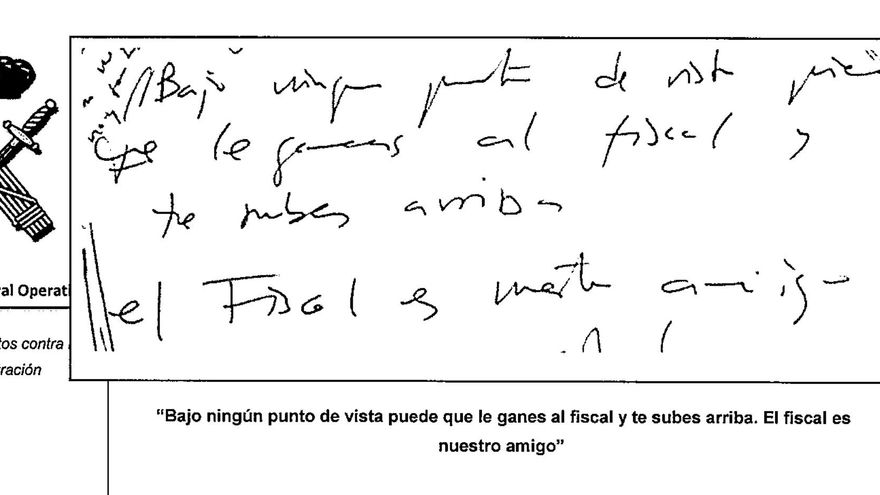 //Bajo ningun punto de vista
que le ganes al fiscal y
te subes arriba
el Fiscal es nuestro amigo
ral Operati
tos contra
ración
“Bajo ningún punto de vista puede que le ganes al fiscal y te subes arriba. El fiscal es
nuestro amigo”